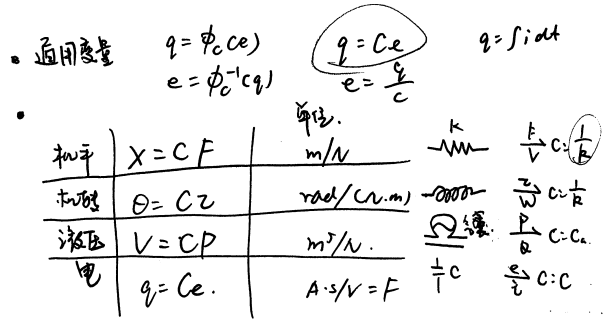 • 通用变量 q = ϕc(e) q = Ce q = ∫idt
e = ϕc⁻¹(q) e = q/c
• 单位.
机平 X = CF m/N k F/V C: 1/k
机转 θ = Cτ rad/(N.m) τ/W C: 1/k
液压 V = CP m⁵/N. P/Q C: Ca
电 q = Ce. A·s/V = F C e/i C: C